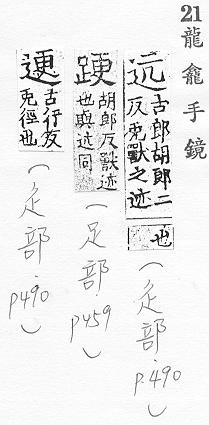 21龍龕手鏡
迒古郎胡郎二
反兎獸之迹
也
(辵部.P.490)
胡郎反獸迹
也與迒同
(足部.P459)
古行反
兎徑也
(辵部.P490)